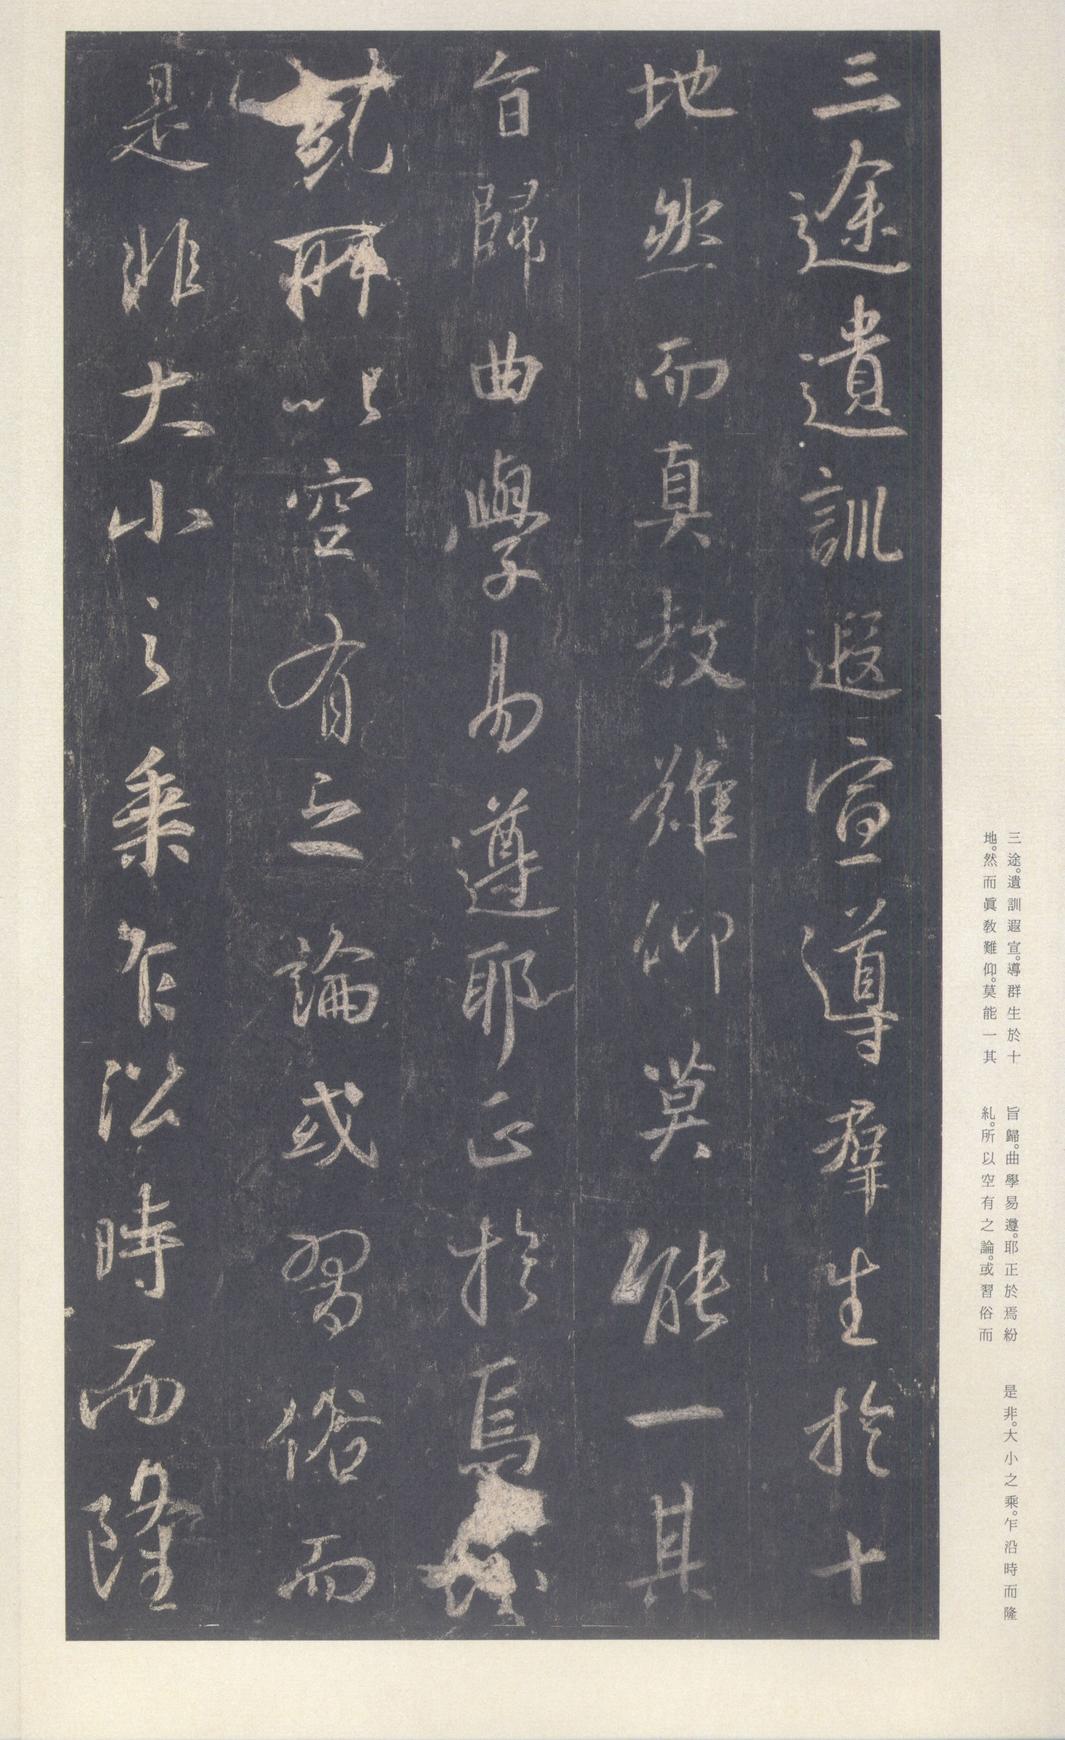 三途遺訓遐宣導群生於十
地然而真教難仰莫能一其
旨歸曲學易遵耶正於焉紛
糺所以空有之論或習俗而
是非大小之乘乍沿時而隆
三途。遺訓遐宣。導群生於十
地。然而眞教難仰。莫能一其
旨歸。曲學易遵。耶正於焉紛
糺。所以空有之論。或習俗而
是非。大小之乘。乍沿時而隆